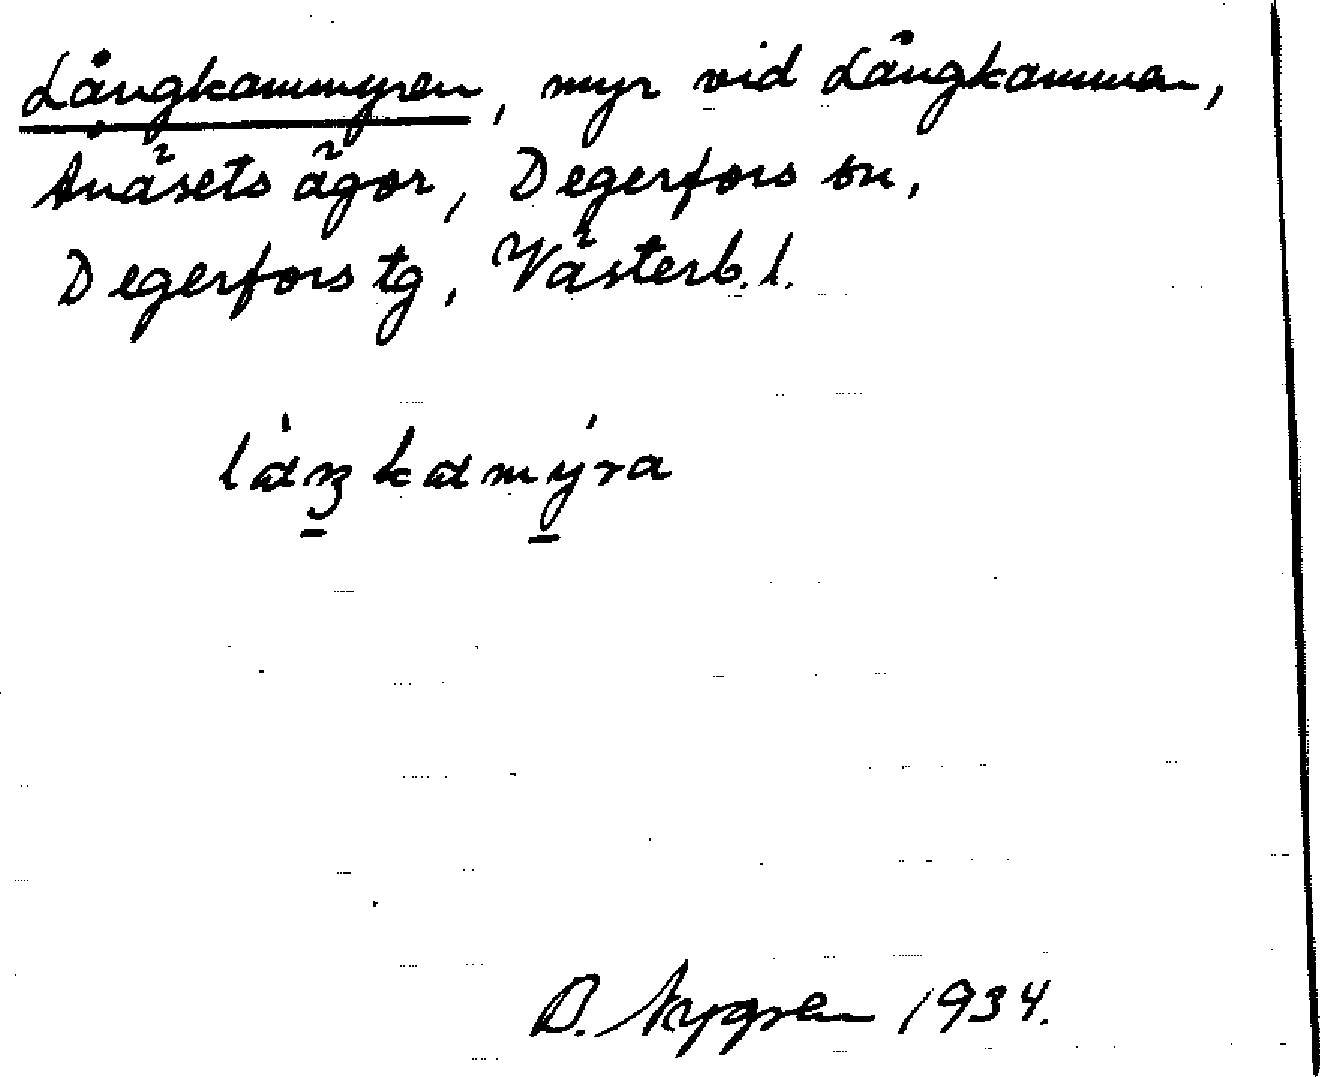 Långkammyren, myr vid Långkamman,
Ånäsets ägor, Degerfors sn,
Degerfors tg, Västerb. l.
D. Nygren 1934.